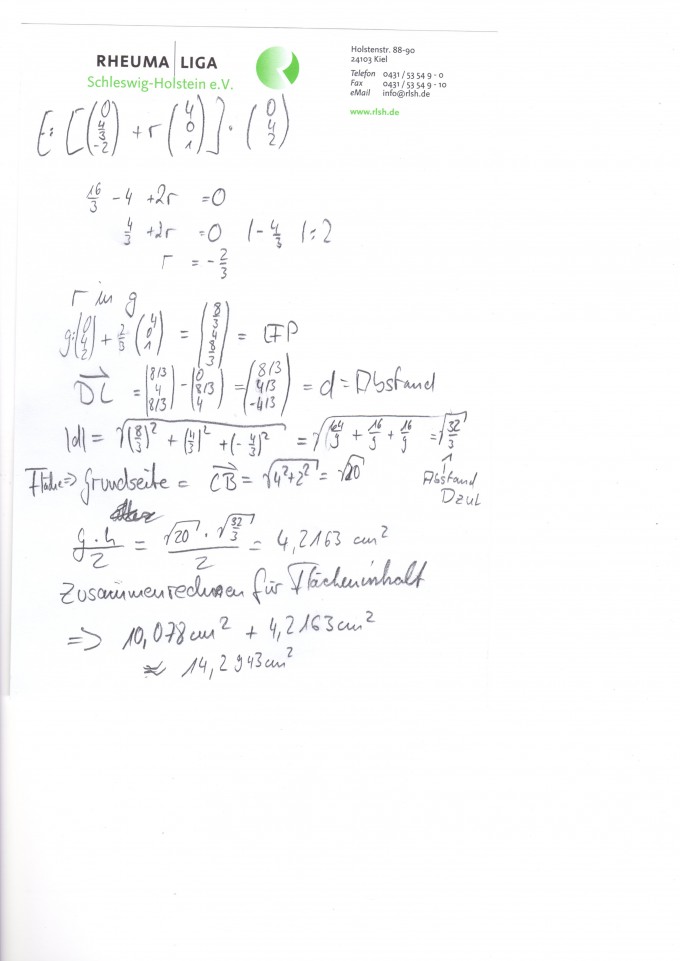 RHEUMA LIGA
Schleswig-Holstein e.V.
Holstenstr. 88-90
24103 Kiel
Telefon 0431 / 53 54 9 - 0
Fax 0431 / 53 54 9 - 10
eMail info@rlsh.de
www.rlsh.de
E: [(0 4/3 -2) + r (4 0 1)] · (0 4 2)
16/3 - 4 + 2r = 0
4/3 + 2r = 0 |- 4/3 |: 2
r = - 2/3
r in g
g: (0 4 2) + 2/3 (4 0 1) = (8/3 4 8/3) =
DL = (8/3 4 8/3) - (0 8/3 4) = (8/3 4/3 -4/3) = d = Abstand
|d| = √((8/3)² + (4/3)² + (-4/3)²) = √(64/9 + 16/9 + 16/9) = √(32/3)
Fläche => Grundseite = CB = √(4²+2²) = √20
↑
Abstand
D zu L
g · h / 2 = √20 · √(32/3) / 2 = 4,2163 cm²
Zusammenrechnen für Flächeninhalt
=> 10,078 cm² + 4,2163 cm²
≈ 14,2943 cm²